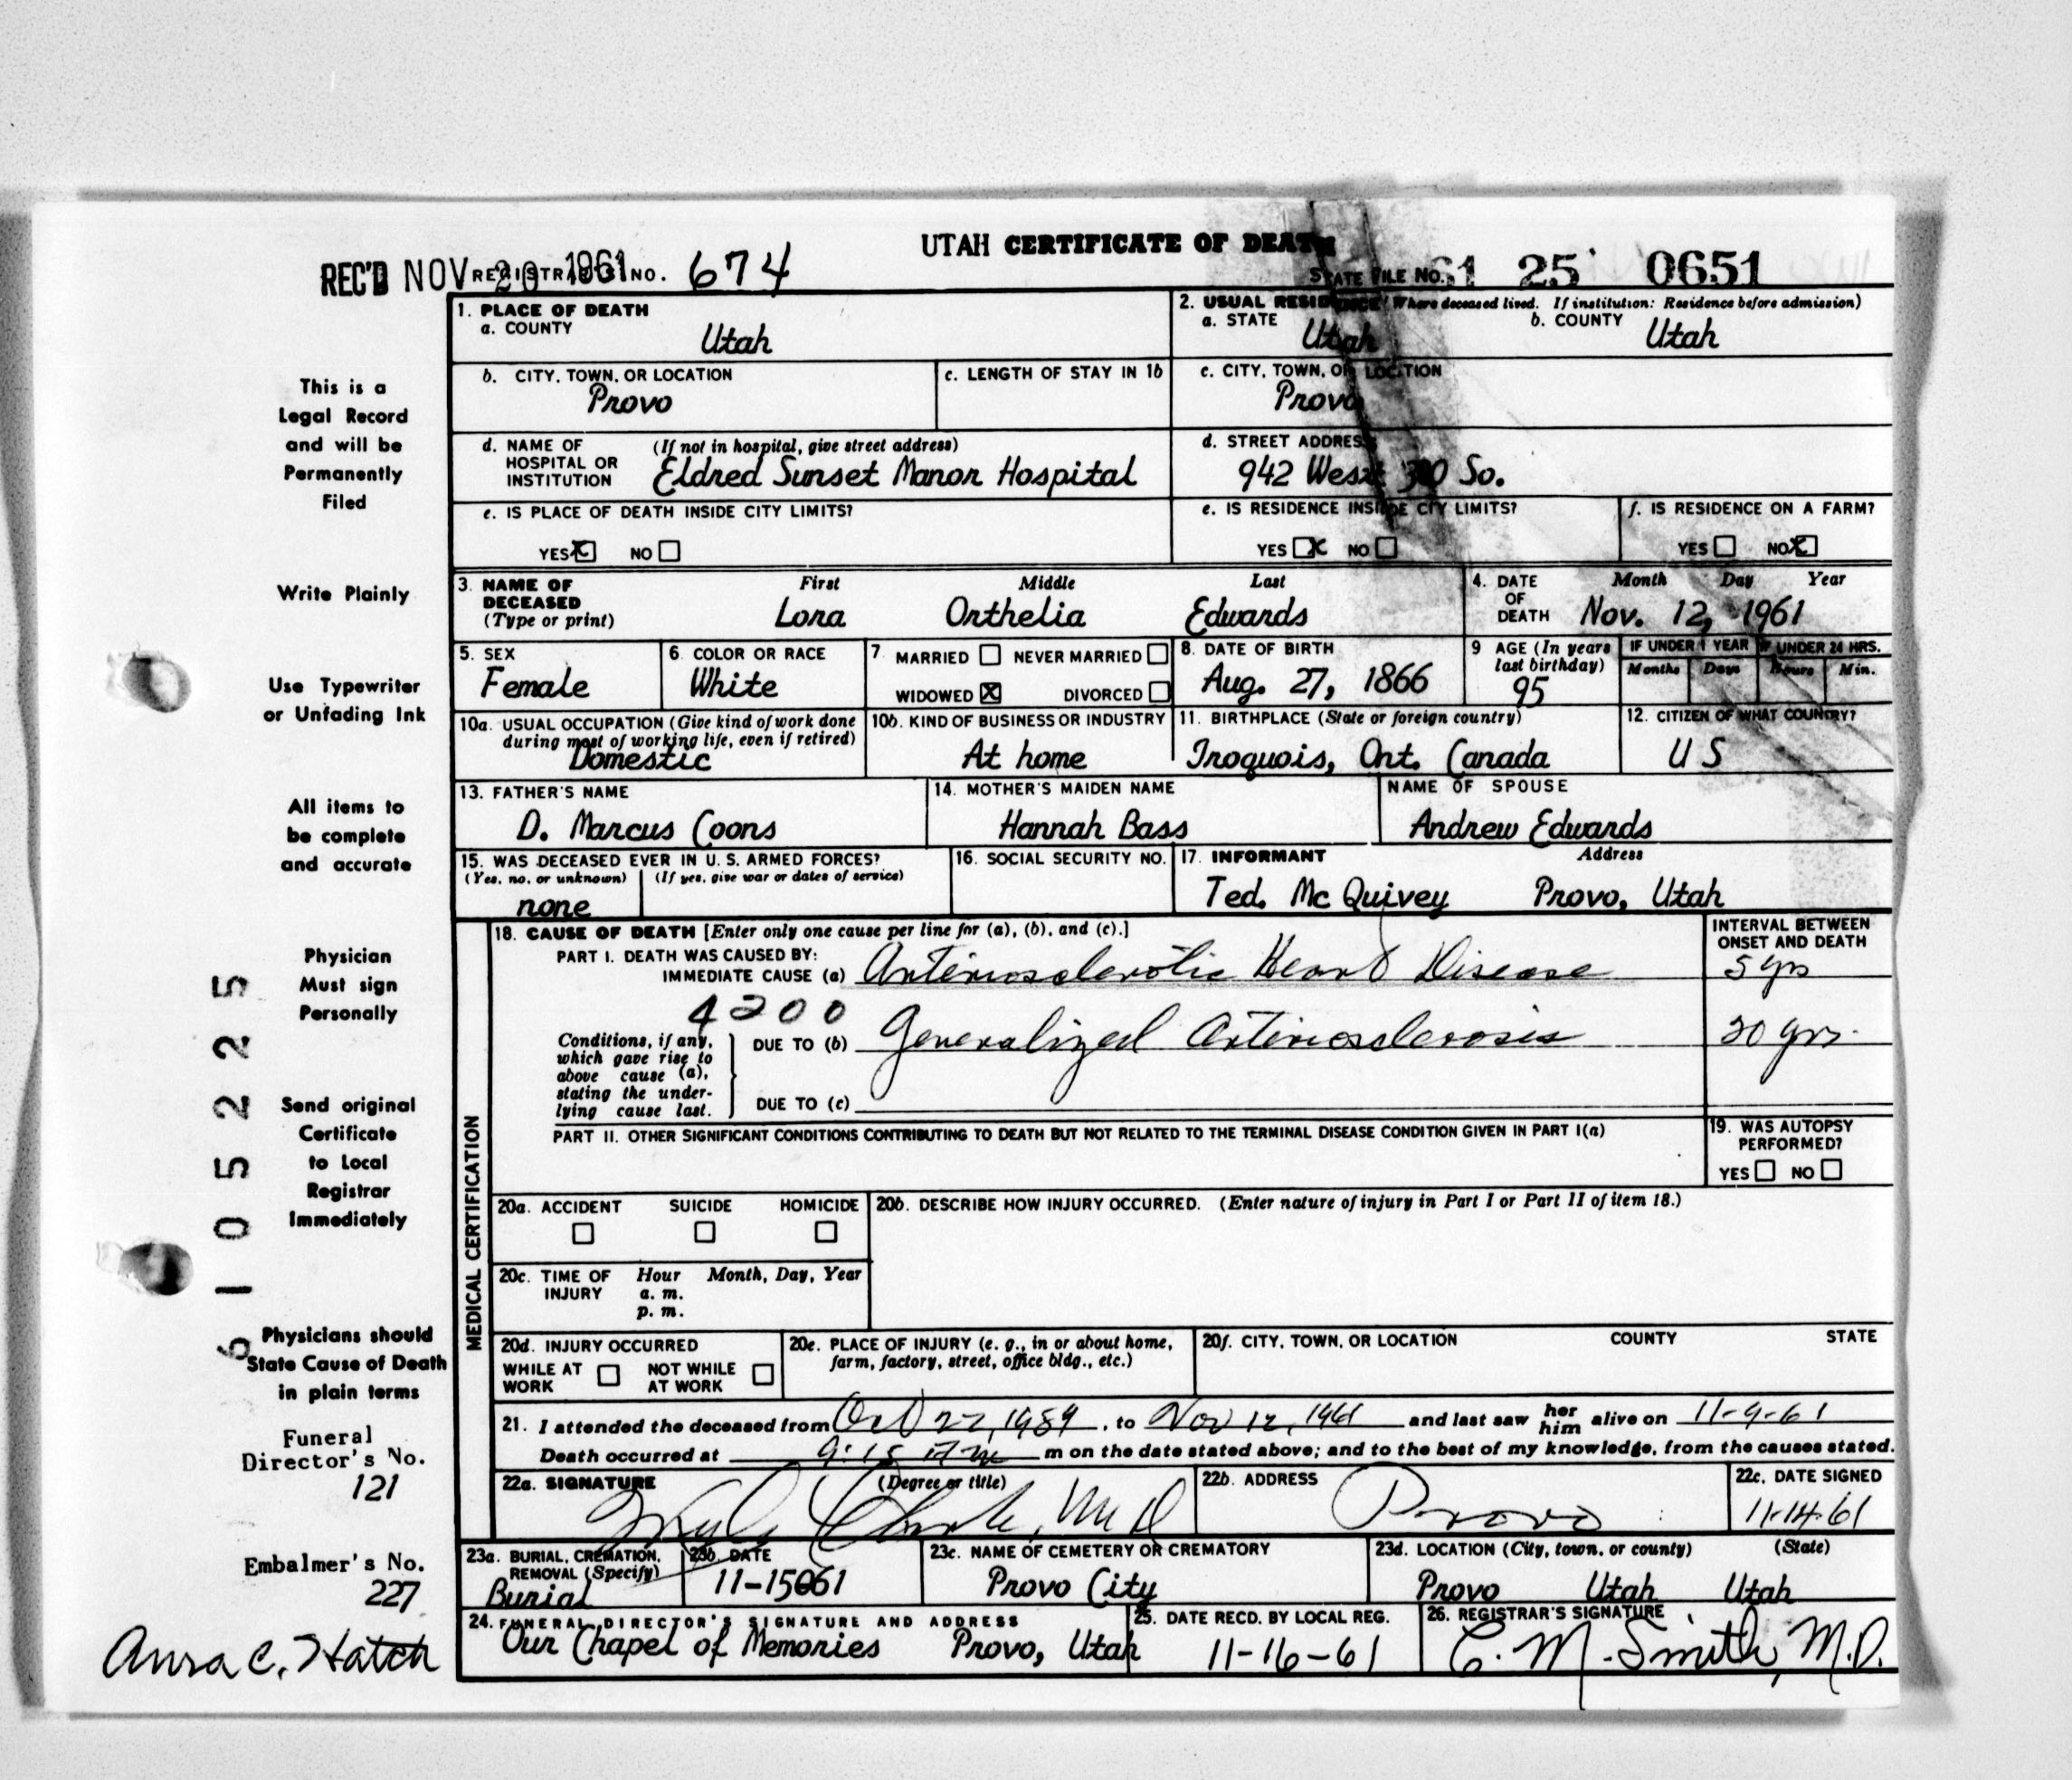 UTAH CERTIFICATE OF DEATH
REC'D NOV 20 1961 REGISTRAR'S NO. 674 STATE FILE NO. 61 25 0651
1. PLACE OF DEATH
a. COUNTY Utah
2. USUAL RESIDENCE (Where deceased lived. If institution: Residence before admission)
a. STATE Utah b. COUNTY Utah
b. CITY, TOWN, OR LOCATION Provo
c. LENGTH OF STAY IN 1b
c. CITY, TOWN, OR LOCATION Provo
d. NAME OF HOSPITAL OR INSTITUTION (If not in hospital, give street address)
Eldred Sunset Manor Hospital
d. STREET ADDRESS
942 West 300 So.
e. IS PLACE OF DEATH INSIDE CITY LIMITS?
YES X NO
e. IS RESIDENCE INSIDE CITY LIMITS?
YES X NO
f. IS RESIDENCE ON A FARM?
YES NO X
3. NAME OF DECEASED (Type or print)
First Middle Last
Lora Orthelia Edwards
4. DATE OF DEATH Month Day Year
Nov. 12, 1961
5. SEX Female
6. COLOR OR RACE White
7 MARRIED NEVER MARRIED
WIDOWED X DIVORCED
8. DATE OF BIRTH Aug. 27, 1866
9 AGE (In years last birthday) 95
IF UNDER 1 YEAR IF UNDER 24 HRS.
Months Days Hours Min.
10a. USUAL OCCUPATION (Give kind of work done during most of working life, even if retired)
Domestic
10b. KIND OF BUSINESS OR INDUSTRY
At home
11. BIRTHPLACE (State or foreign country)
Iroquois, Ont. Canada
12. CITIZEN OF WHAT COUNTRY?
U S
13. FATHER'S NAME
D. Marcus Coons
14. MOTHER'S MAIDEN NAME
Hannah Bass
NAME OF SPOUSE
Andrew Edwards
15. WAS DECEASED EVER IN U. S. ARMED FORCES?
(Yes, no, or unknown) (If yes, give war or dates of service)
none
16. SOCIAL SECURITY NO.
17. INFORMANT Address
Ted. Mc Quivey Provo, Utah
MEDICAL CERTIFICATION
18. CAUSE OF DEATH [Enter only one cause per line for (a), (b), and (c).]
INTERVAL BETWEEN ONSET AND DEATH
PART I. DEATH WAS CAUSED BY:
IMMEDIATE CAUSE (a) Arteriosclerotic Heart Disease 5 yrs
4200
Conditions, if any, which gave rise to above cause (a), stating the underlying cause last.
DUE TO (b) Generalized Arteriosclerosis 20 yrs.
DUE TO (c)
PART II. OTHER SIGNIFICANT CONDITIONS CONTRIBUTING TO DEATH BUT NOT RELATED TO THE TERMINAL DISEASE CONDITION GIVEN IN PART I(a)
19. WAS AUTOPSY PERFORMED?
YES NO
20a. ACCIDENT SUICIDE HOMICIDE
20b. DESCRIBE HOW INJURY OCCURRED. (Enter nature of injury in Part I or Part II of item 18.)
20c. TIME OF INJURY Hour Month, Day, Year
a. m.
p. m.
20d. INJURY OCCURRED
WHILE AT WORK NOT WHILE AT WORK
20e. PLACE OF INJURY (e. g., in or about home, farm, factory, street, office bldg., etc.)
20f. CITY, TOWN, OR LOCATION COUNTY STATE
21. I attended the deceased from Oct 22, 1959, to Nov 12, 1961 and last saw her him alive on 11-9-61
Death occurred at 9:15 A m m on the date stated above; and to the best of my knowledge, from the causes stated.
22a. SIGNATURE (Degree or title)
Clark, M D
22b. ADDRESS Provo
22c. DATE SIGNED
11-14-61
23a. BURIAL, CREMATION, REMOVAL (Specify)
Burial
23b. DATE
11-15-61
23c. NAME OF CEMETERY OR CREMATORY
Provo City
23d. LOCATION (City, town, or county) (State)
Provo Utah Utah
24. FUNERAL DIRECTOR'S SIGNATURE AND ADDRESS
Our Chapel of Memories Provo, Utah
25. DATE RECD. BY LOCAL REG.
11-16-61
26. REGISTRAR'S SIGNATURE
C. M. Smith, M.D.
This is a
Legal Record
and will be
Permanently
Filed
Write Plainly
Use Typewriter
or Unfading Ink
All items to
be complete
and accurate
Physician
Must sign
Personally
Send original
Certificate
to Local
Registrar
Immediately
Physicians should
State Cause of Death
in plain terms
Funeral
Director's No.
121
Embalmer's No.
227
Anna C. Hatch
6105225